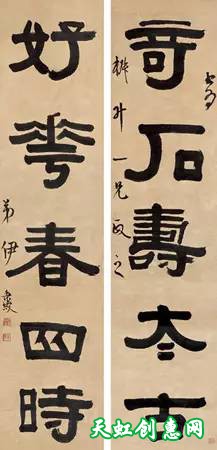 奇石壽太古
升一兄政之
好華春四時
弟伊秉綬
天虹创惠网